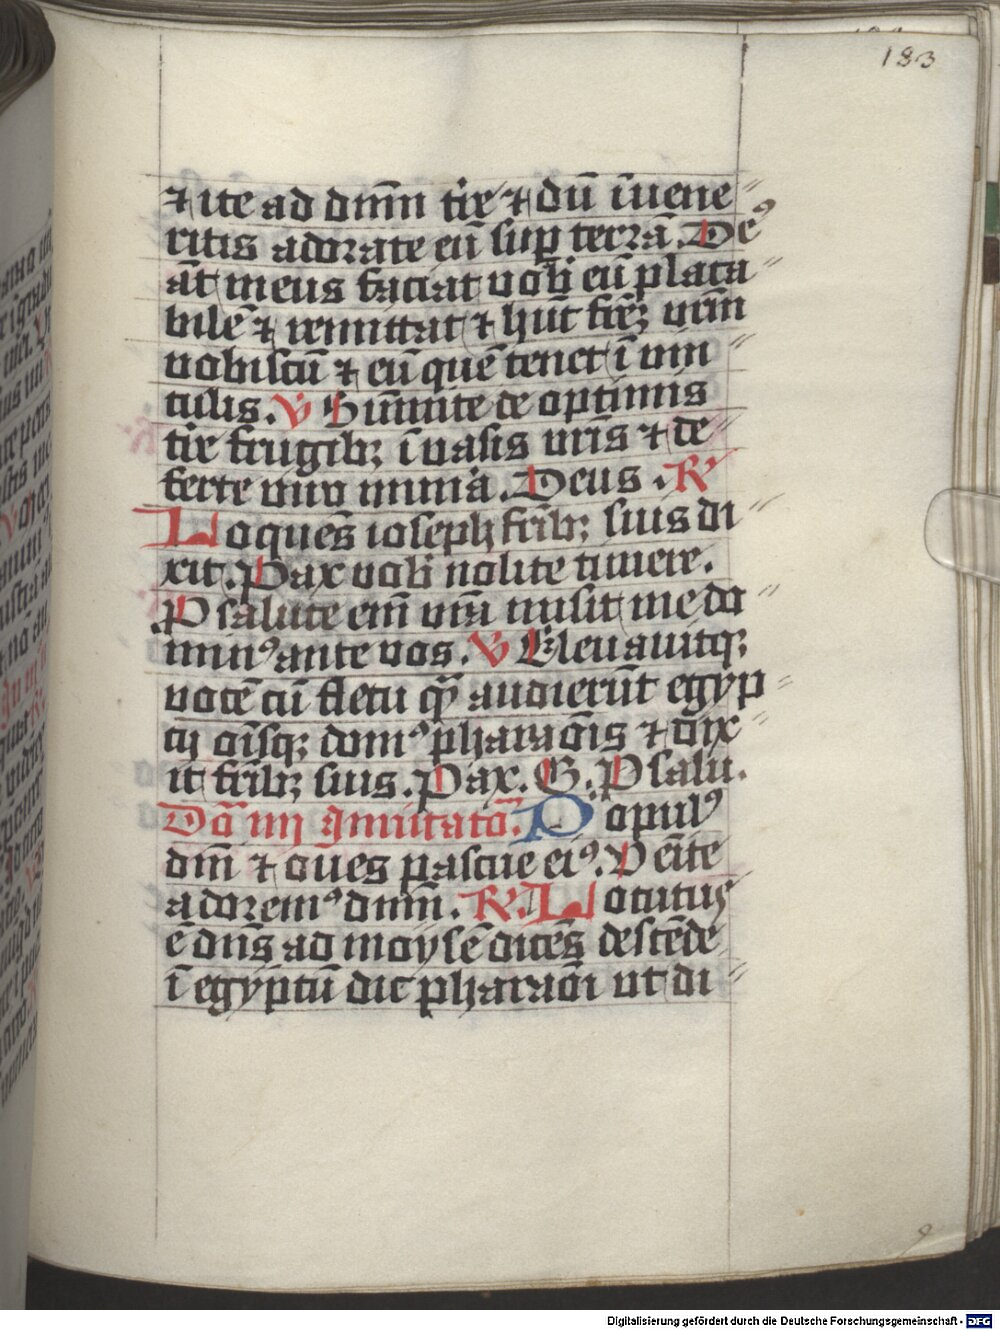 183
⁊ ite ad dnm̄ tr̄e ⁊ dū īuene〃
ritis adorate eū suꝑ terrā. De⁹
āt meus faciat vob̄ eū placa〃
bilē ⁊ remittat ⁊ hūc frēꝫ vrm̄
vobiscū ⁊ eū quē tenet ī vin〃
culis. V Sumite de optimis
tr̄e frugibꝫ ī vasis vr̄is ⁊ de〃
ferte viro mun̄a. Deus. R
Loquēs ioseph fr̄ibꝫ suis di〃
xit. Pax vob̄ nolite timere.
P salute em̄ vr̄a misit me do〃
min⁹ ante vos. V Eleuauitqꝫ
vocē cū fletu q̄ȝ audierūt egyp〃
cij oīsqꝫ dom⁹ pharaōis ⁊ dix〃
it fr̄ibꝫ suis. Pax. G. P salu.
Dō iiij Inuitatō. Popul⁹
dm̄ ⁊ oues pascue ei⁹. Veīte
adorem⁹ dnm̄. R. Locutus
ē dn̄s ad moysē dicēs descēde
ī egyptū dic pharaōi ut di〃
Digitalisierung gefördert durch die Deutsche Forschungsgemeinschaft - DFG